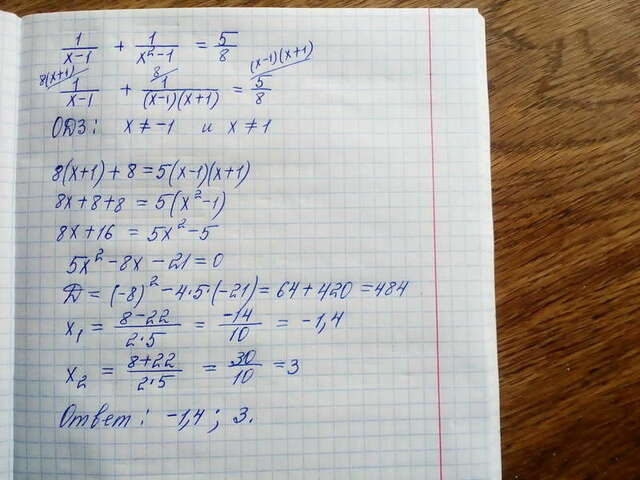 1/(x-1) + 1/(x²-1) = 5/8
8(x+1) 8 (x-1)(x+1)
1/(x-1) + 1/((x-1)(x+1)) = 5/8
ОДЗ: x ≠ -1 и x ≠ 1
8(x+1) + 8 = 5(x-1)(x+1)
8x + 8 + 8 = 5(x²-1)
8x + 16 = 5x² - 5
5x² - 8x - 21 = 0
Д = (-8)² - 4·5·(-21) = 64 + 420 = 484
x₁ = (8-22)/(2·5) = -14/10 = -1,4
x₂ = (8+22)/(2·5) = 30/10 = 3
Ответ: -1,4; 3.